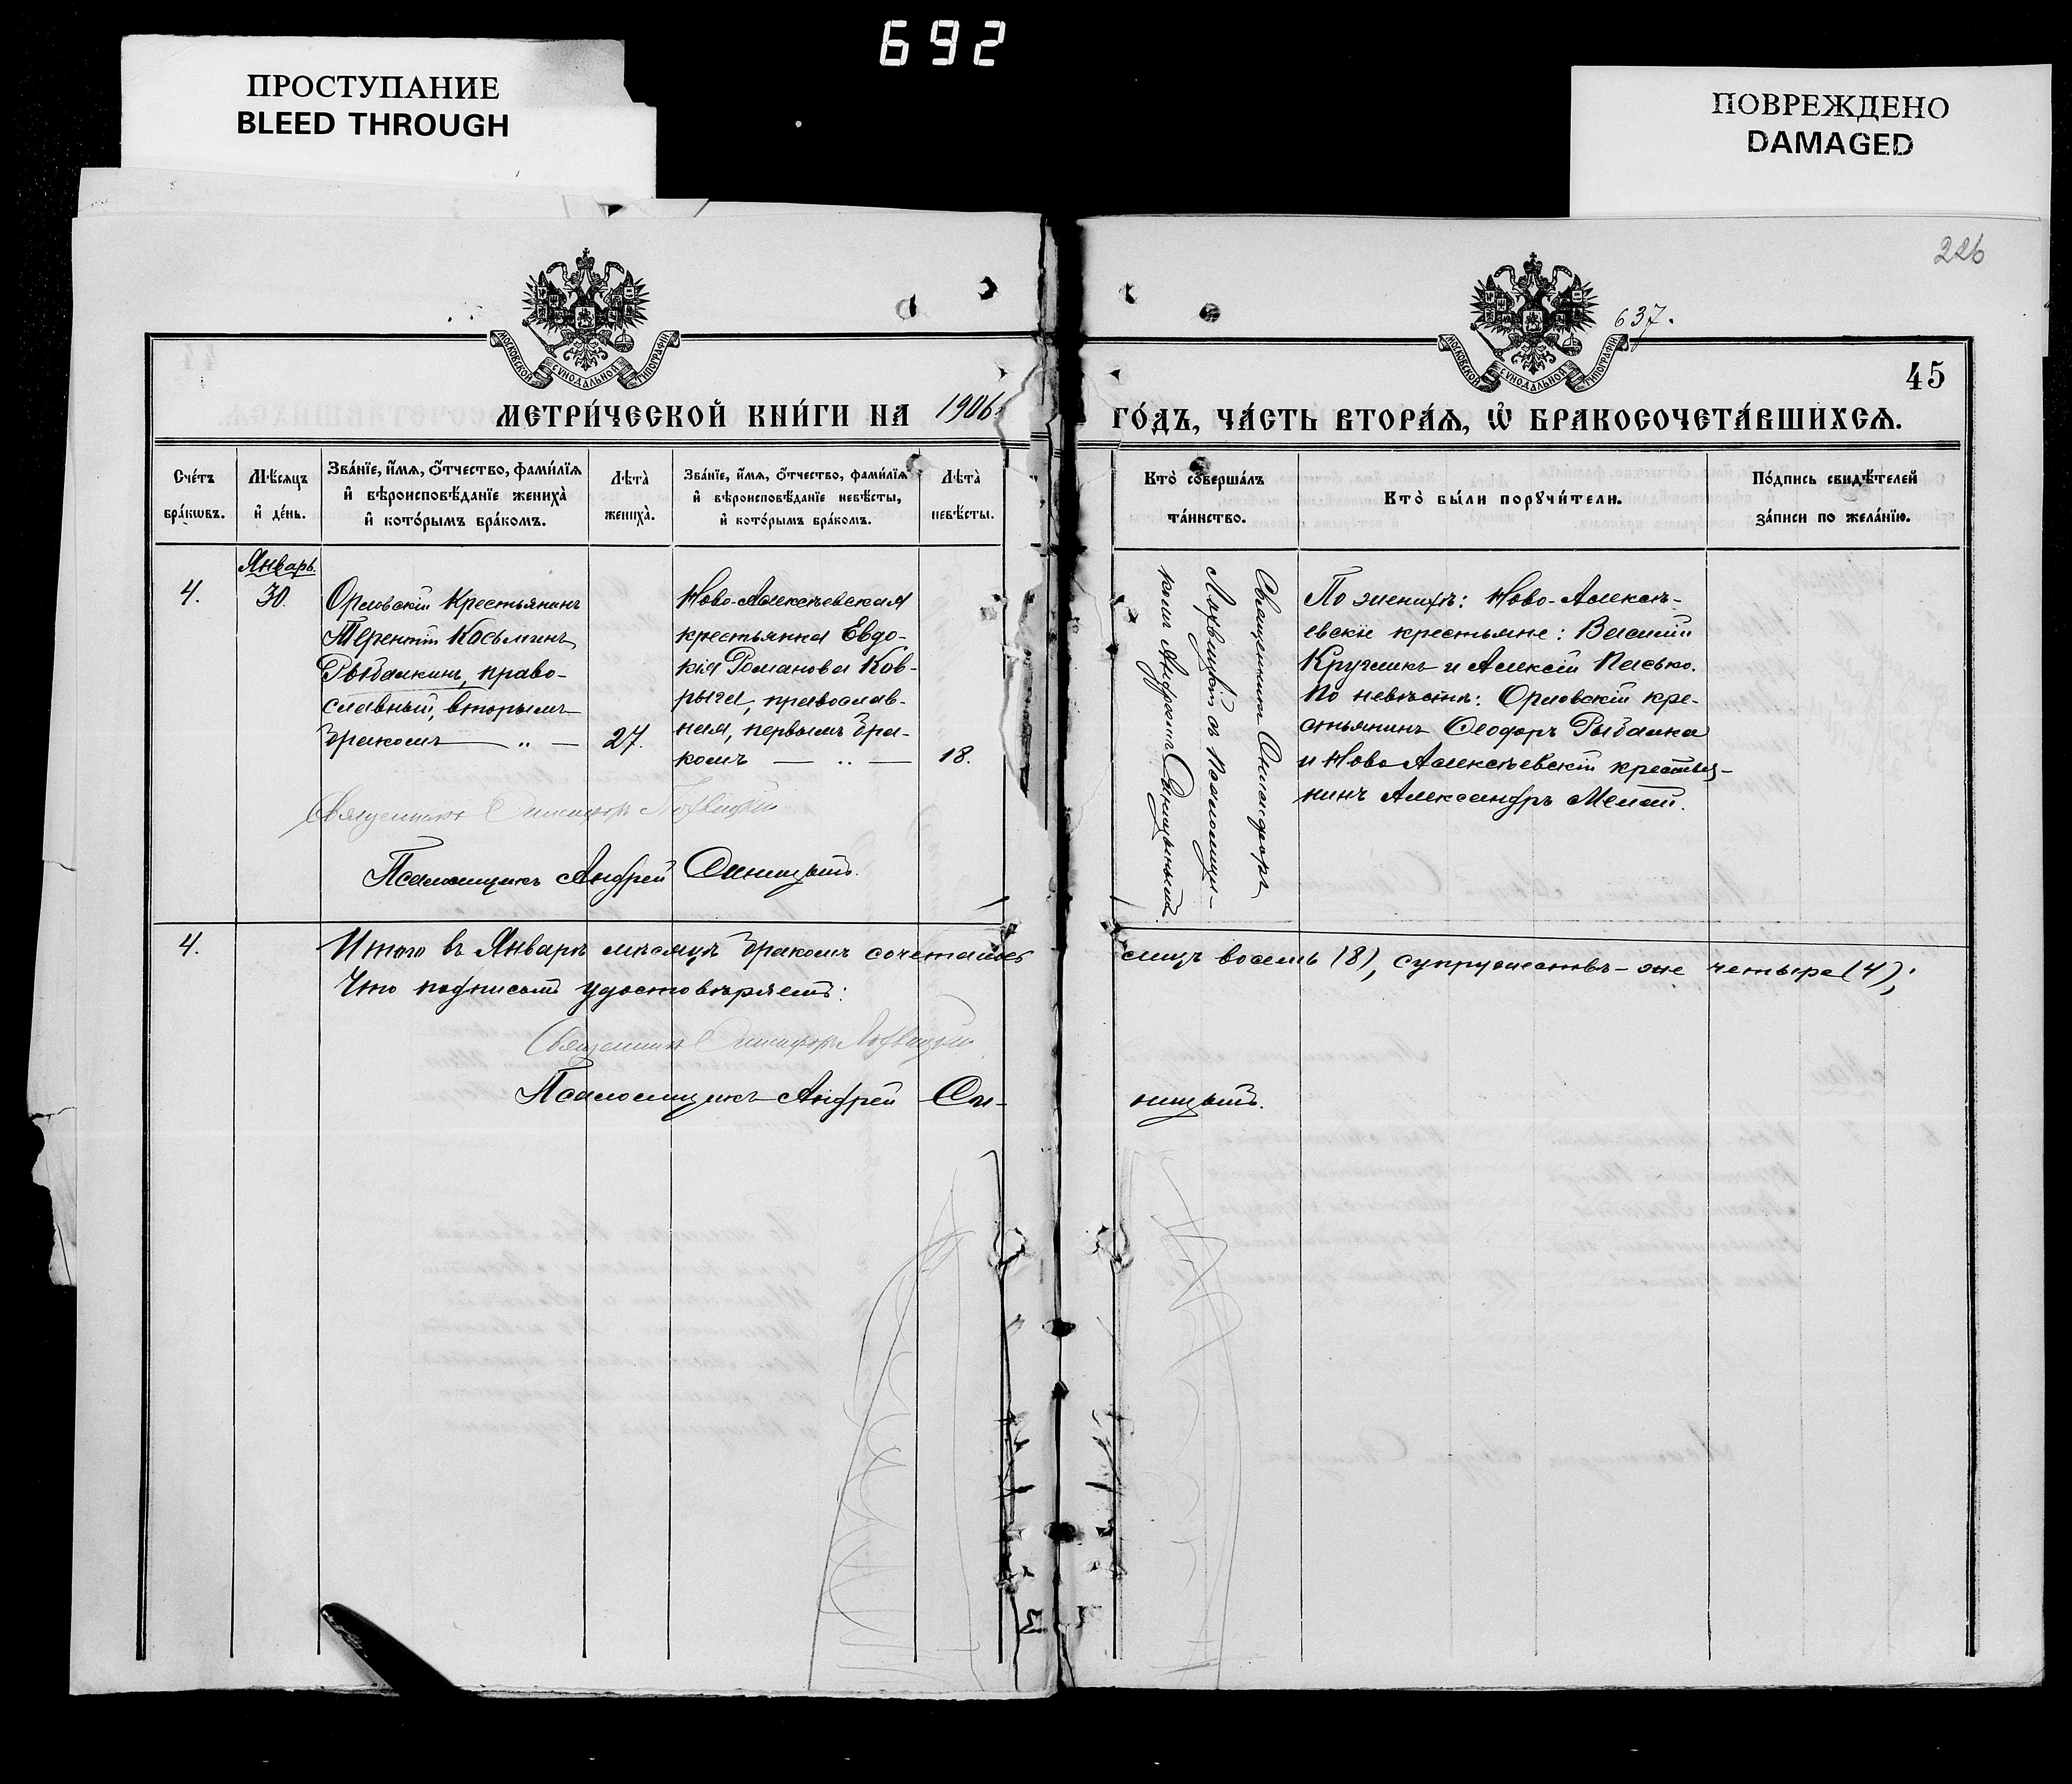 692
ПРОСТУПАНИЕ
BLEED THROUGH
ПОВРЕЖДЕНО
DAMAGED
226
637.
МОСКОВСКОЙ СѴНОДАЛЬНОЙ ТИПОГРАФІИ
МОСКОВСКОЙ СѴНОДАЛЬНОЙ ТИПОГРАФІИ
45
МЕТРИ́ЧЕСКОЙ КНИ́ГИ НА 1906
ГО́ДЪ, ЧА́СТЬ ВТОРА́Ѧ, Ѡ҆ БРАКОСОЧЕТА́ВШИХСѦ.
Сче́тъ
бра́кѡвъ.
Мѣ́сѧцъ
и҆ де́нь.
Зва́нїе, и҆́мѧ, ѻ҆́тчество, фами́лїѧ
и҆ вѣроисповѣ́данїе жениха̀
и҆ кото́рымъ бра́комъ.
Лѣта̀
жениха̀.
Зва́нїе, и҆́мѧ, ѻ҆́тчество, фами́лїѧ
и҆ вѣроисповѣ́данїе невѣ́сты,
и҆ кото́рымъ бра́комъ.
Лѣта̀
невѣ́сты.
Кто̀ соверша́лъ
та́инство.
Кто̀ бы́ли порꙋчи́тели.
По́дпись свидѣ́телей
за́писи по жела́нїю.
4.
Январь.
30.
Орловскій крестьянинъ
Терентій Косьминъ
Рыбалкинъ, право-
славный, вторымъ
бракомъ — „ —
27.
Ново-Алексѣевская
крестьянка Евдо-
кія Романова Ков-
рыга, православ-
ная, первымъ бра-
комъ — „ —
18.
Священникъ Онисифоръ
Лохвицкій съ Псаломщи-
комъ Андреемъ Синицкимъ.
По женихѣ: Ново-Алексѣ-
евскіе крестьяне: Василій
Кругликъ и Алексій Пасько.
По невѣстѣ: Орловскій кре-
стьянинъ Ѳеодоръ Рыбалка
и Ново Алексѣевскій крестья-
нинъ Александръ
Священникъ Онисифоръ Лохвицкій
Псаломщикъ Андрей Синицкій.
4.
Итого въ Январѣ мѣсяцѣ бракомъ сочетавших
сицъ восемь (8), супружествъ-же четыре (4);
Что подписомъ удостовѣряетъ:
Священникъ Онисифоръ Лохвицкій
Псаломщикъ Андрей Си-
ницкій.